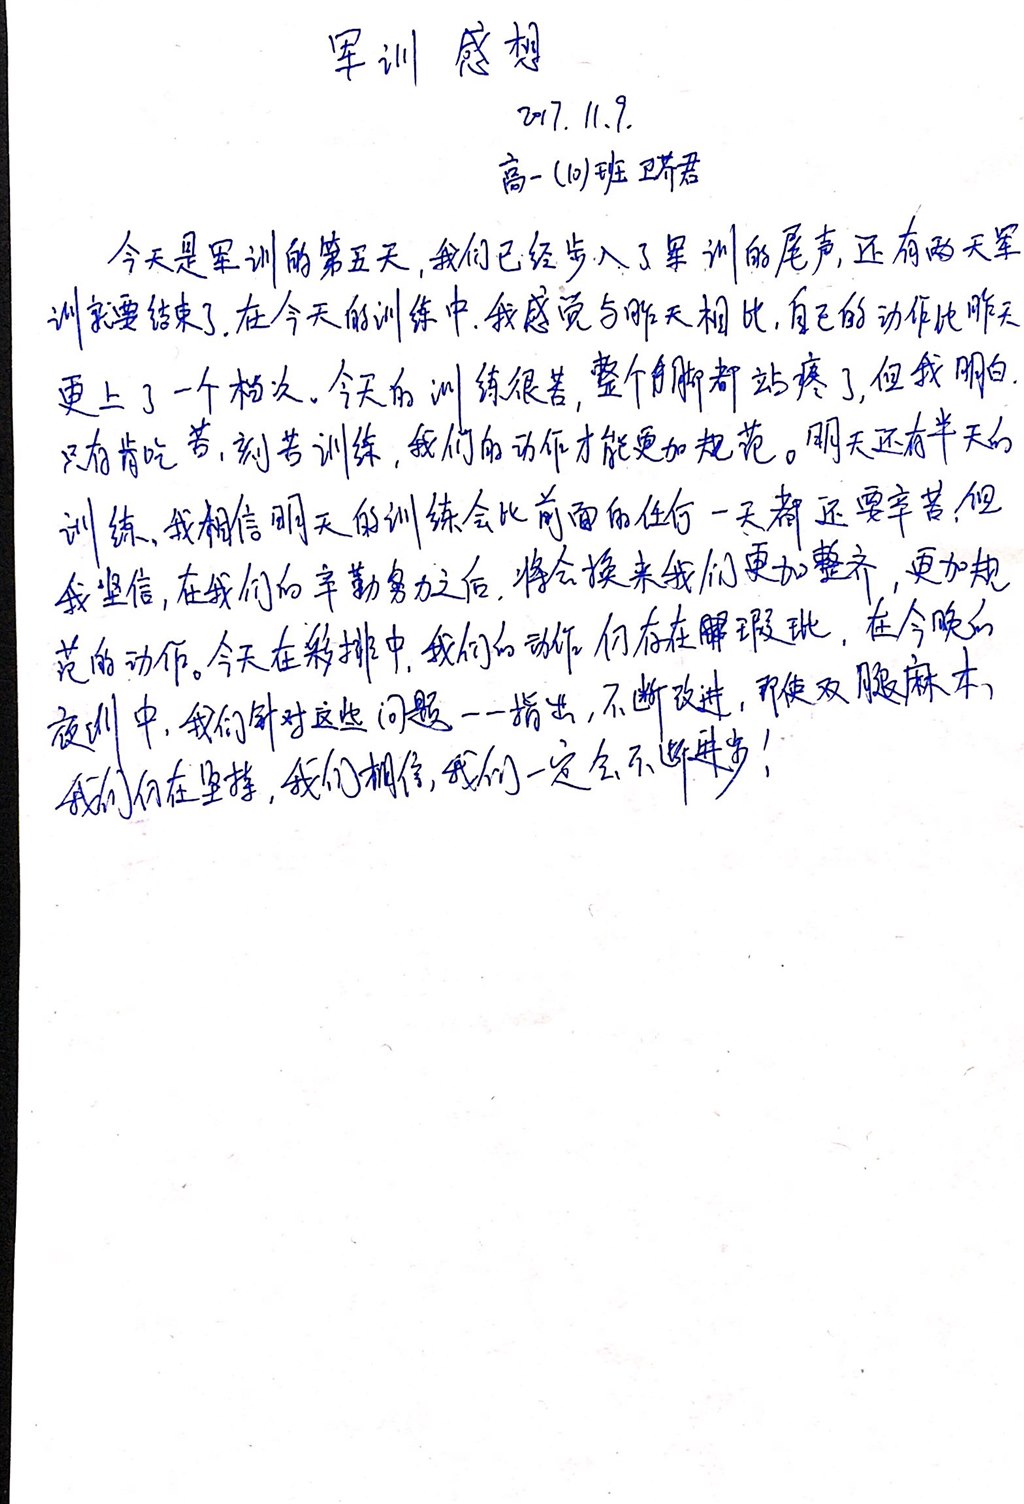 军训 感想
2017.11.9.
高一(10)班 卫芥君
今天是军训的第五天,我们已经步入了军训的尾声,还有两天军
训就要结束了.在今天的训练中.我感觉与昨天相比,自己的动作比昨天
更上了一个档次。今天的训练很苦,整个脚都站疼了,但我明白.
只有肯吃苦,刻苦训练,我们的动作才能更加规范。明天还有半天的
训练、我相信明天的训练会比前面的任何一天都还要辛苦!但
我坚信,在我们的辛勤努力之后.将会换来我们更加整齐,更加规
范的动作。今天在彩排中,我们的动作仍存在瑕玼,在今晚的
夜训中,我们针对这些问题一一指出,不断改进,即使双腿麻木,
我们仍在坚持,我们相信,我们一定会不断进步!